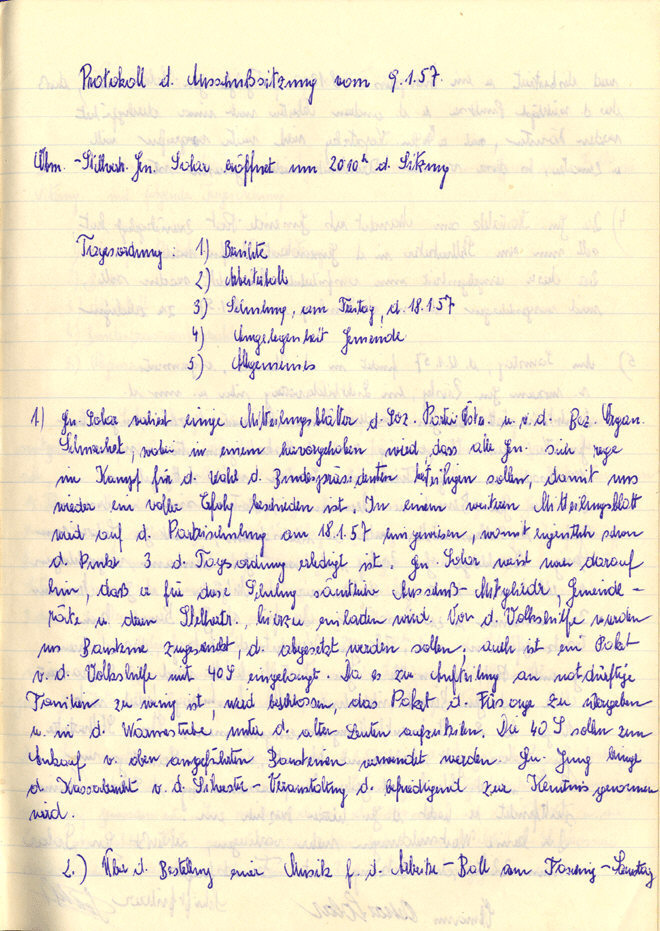 Protokoll d. Ausschußsitzung vom 9.1.57
Obm. - Stellvertr. Gn. Solar eröffnet um 2010h d. Sitzung
Tagesordnung: 1) Berichte
2) Arbeiterball
3) Schulung, am Freitag, d. 18.1.57
4) Angelegenheit Gemeinde
5) Allgemeines
1) Gn. Solar verliest einige Mitteilungsblätter d. Soz. Partei Österr. u. v. d. Bez. Organ.
Schwechat, wobei in einem hervorgehoben wird, dass alle Gn. sich rege
im Kampf für d. Wahl d. Bundespräsidenten beteiligen sollen, damit uns
wieder ein voller Erfolg beschieden ist. In einem weiteren Mitteilungsblatt
wird auf d. Parteischulung am 18.1.57 hingewiesen, womit eigentlich schon
d. Punkt 3 d. Tagesordnung erledigt ist. Gn. Solar weist noch darauf
hin, daß er für diese Schulung sämtliche Ausschuß-Mitglieder, Gemeinde-
räte u. deren Stellvertr., hierzu einladen wird. Von d. Volkshilfe wurden
uns Bausteine zugesandt, d. abgesetzt werden sollen, auch ist ein Paket
v. d. Volkshilfe mit 40 S eingelangt. Da es zur Aufteilung an notdürftige
Familien zu wenig ist, wird beschlossen, das Paket d. Fürsorge zu übergeben
u. in d. Wärmestube unter d. alten Leuten aufzuteilen. Die 40 S sollen zum
Ankauf v. oben angeführten Bausteinen verwendet werden. Gn. Jung bringt
d. Kassabericht v. d. Silvester-Veranstaltung d. befriedigend zur Kenntnis genommen
wird.
2.) Über d. Bestellung einer Musik f. d. Arbeiter-Ball am Fasching-Samstag